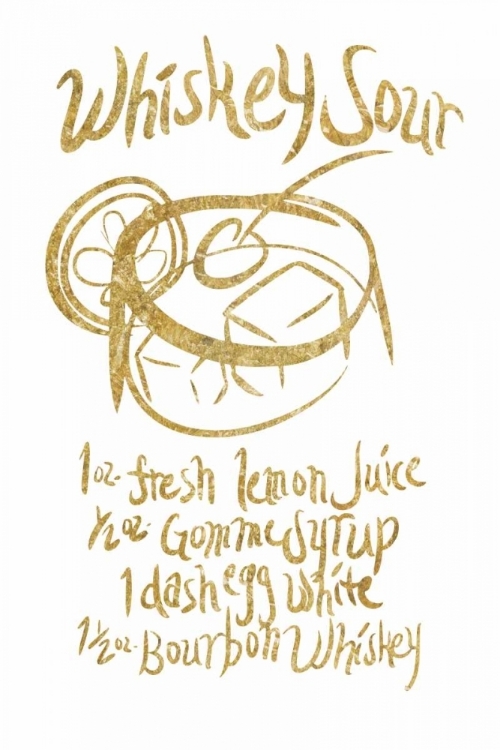 Whiskey Sour
1 oz. fresh lemon Juice
1/2 oz. Gomme Syrup
1 dash egg white
1 1/2 oz. Bourbon Whiskey